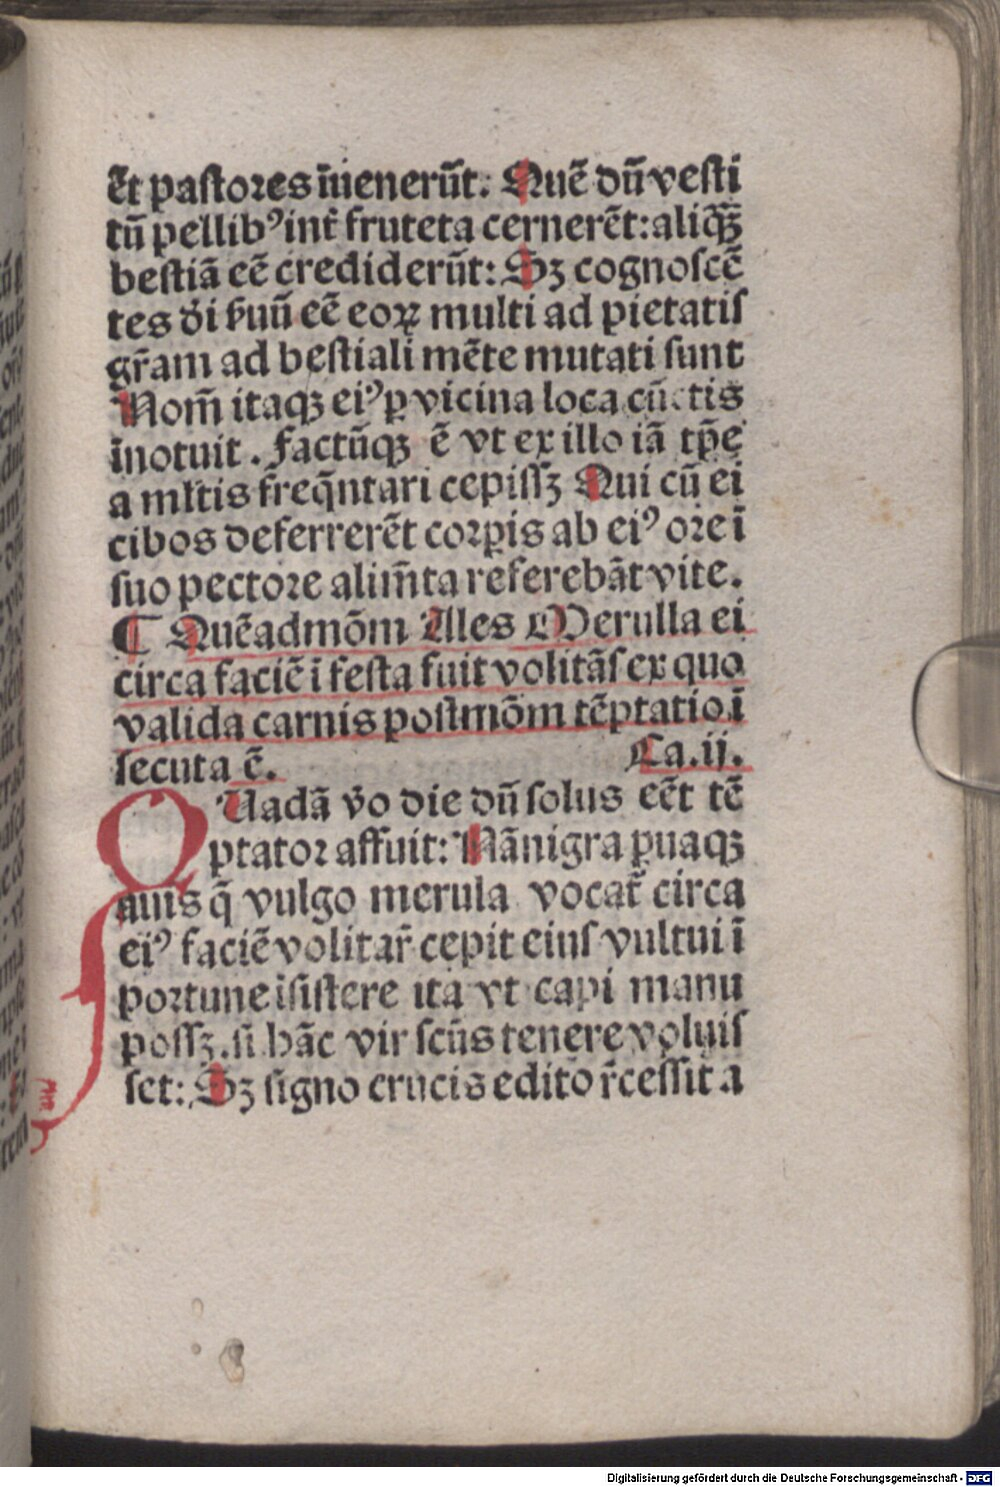 Et pastores īuenerūt: Quē dū vesti
tū pellibꝰ int̄ fruteta cernerēt: aliq̄ꝫ
bestiā eē crediderūt: Sꝫ cognoscē
tes dī ẜuū eē eoꝝ multi ad pietatis
gr̄am ad bestiali mēte mutati sunt
Nom̄ itaqꝫ eiꝰ ꝑ vicina loca cūctis
īnotuit. factūqꝫ ē vt ex illo iā tp̄e
a ml̄tis freq̄ntari cepissꝫ Qui cū ei
cibos deferrerēt corꝑis ab eiꝰ ore ī
suo pectore alim̄ta referebāt vite.
¶ Quēadmōm Ales Merulla ei
circa faciē ī festa fuit volitās ex quo
valida carnis postmōm tēptatio ī
secuta ē. Ca.ij.
QUadā v̄o die dū solus eēt tē
ptator affuit: Nā nigra ꝑuaqꝫ
auis q̄ vulgo merula vocat̄ circa
eiꝰ faciē volitar̄ cepit eius vultui ī
portune īsistere ita vt capi manu
possꝫ. si hāc vir scūs tenere voluis
set: Sꝫ signo crucis edito r̄cessit a
Digitalisierung gefördert durch die Deutsche Forschungsgemeinschaft - DFG